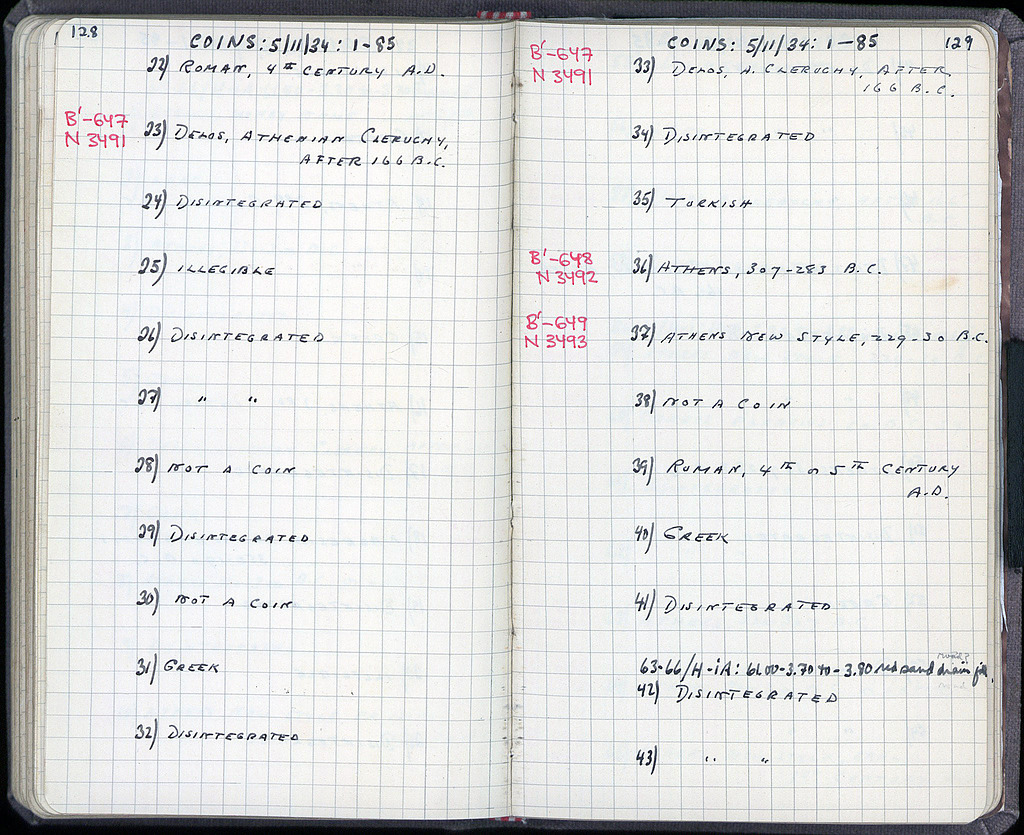 128
COINS: 5/11/34: 1-85
22) ROMAN, 4TH CENTURY A.D.
B'-647
N 3491
23) DELOS, ATHENIAN CLERUCHY,
AFTER 166 B.C.
24) DISINTEGRATED
25) ILLEGIBLE
26) DISINTEGRATED
27) " "
28) NOT A COIN
29) DISINTEGRATED
30) NOT A COIN
31) GREEK
32) DISINTEGRATED
COINS: 5/11/34: 1-85
129
B'-647
N 3491
33) DELOS, A. CLERUCHY, AFTER
166 B.C.
34) DISINTEGRATED
35) TURKISH
B'-648
N 3492
36) ATHENS, 307-283 B.C.
B'-649
N 3493
37) ATHENS NEW STYLE, 229-30 B.C.
38) NOT A COIN
39) ROMAN, 4TH or 5TH CENTURY
A.D.
40) GREEK
41) DISINTEGRATED
63-66/H-IA: -3.70 to -3.80 red sand drain fill.
42) DISINTEGRATED
43) " "